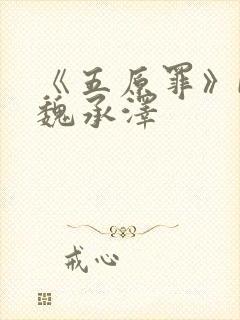 《五原罪》
魏承泽
戒心